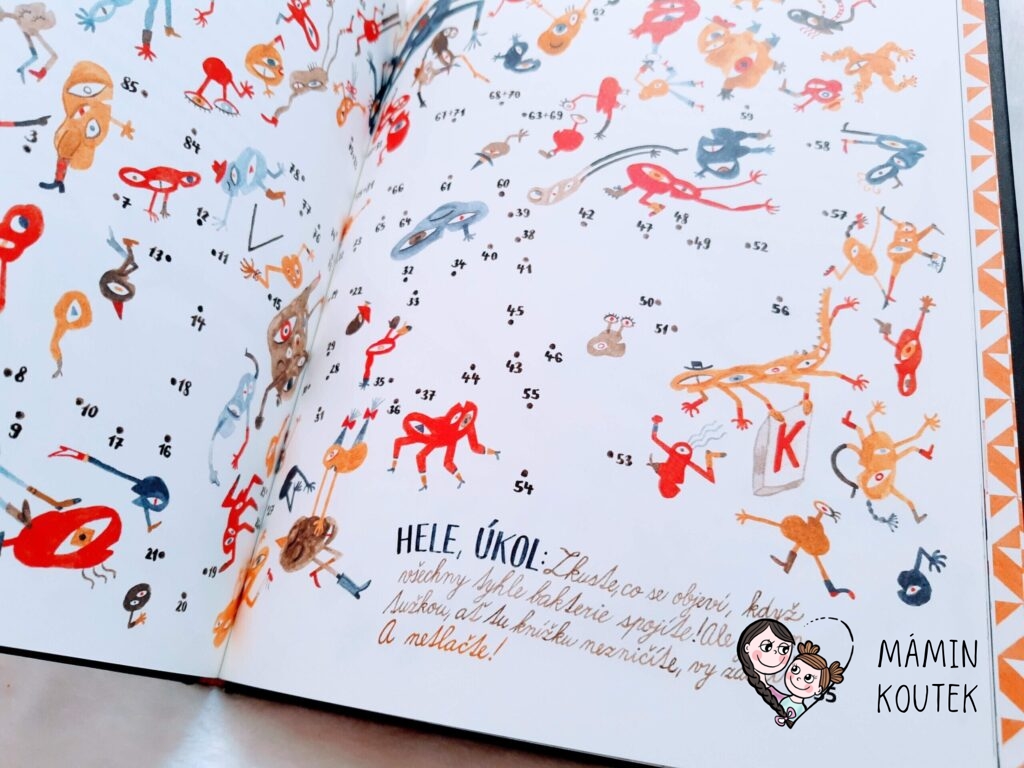 85
3
84
7
12
11
78
13
15
14
8
18
9
10
17
16
21
19
20
68+70
67+71
63+69
59
58
66
61
60
65
64
39
42
48
57
47
49
52
40
41
34
32
33
22
45
50
51
56
29
28
43
46
44
35
37
36
55
31
53
54
K
HELE, ÚKOL: Zkuste, co se objeví, když
všechny tyhle bakterie spojíte! Ale
tužkou, ať tu knížku nezničíte, vy
A netlačte!
MÁMIN
KOUTEK